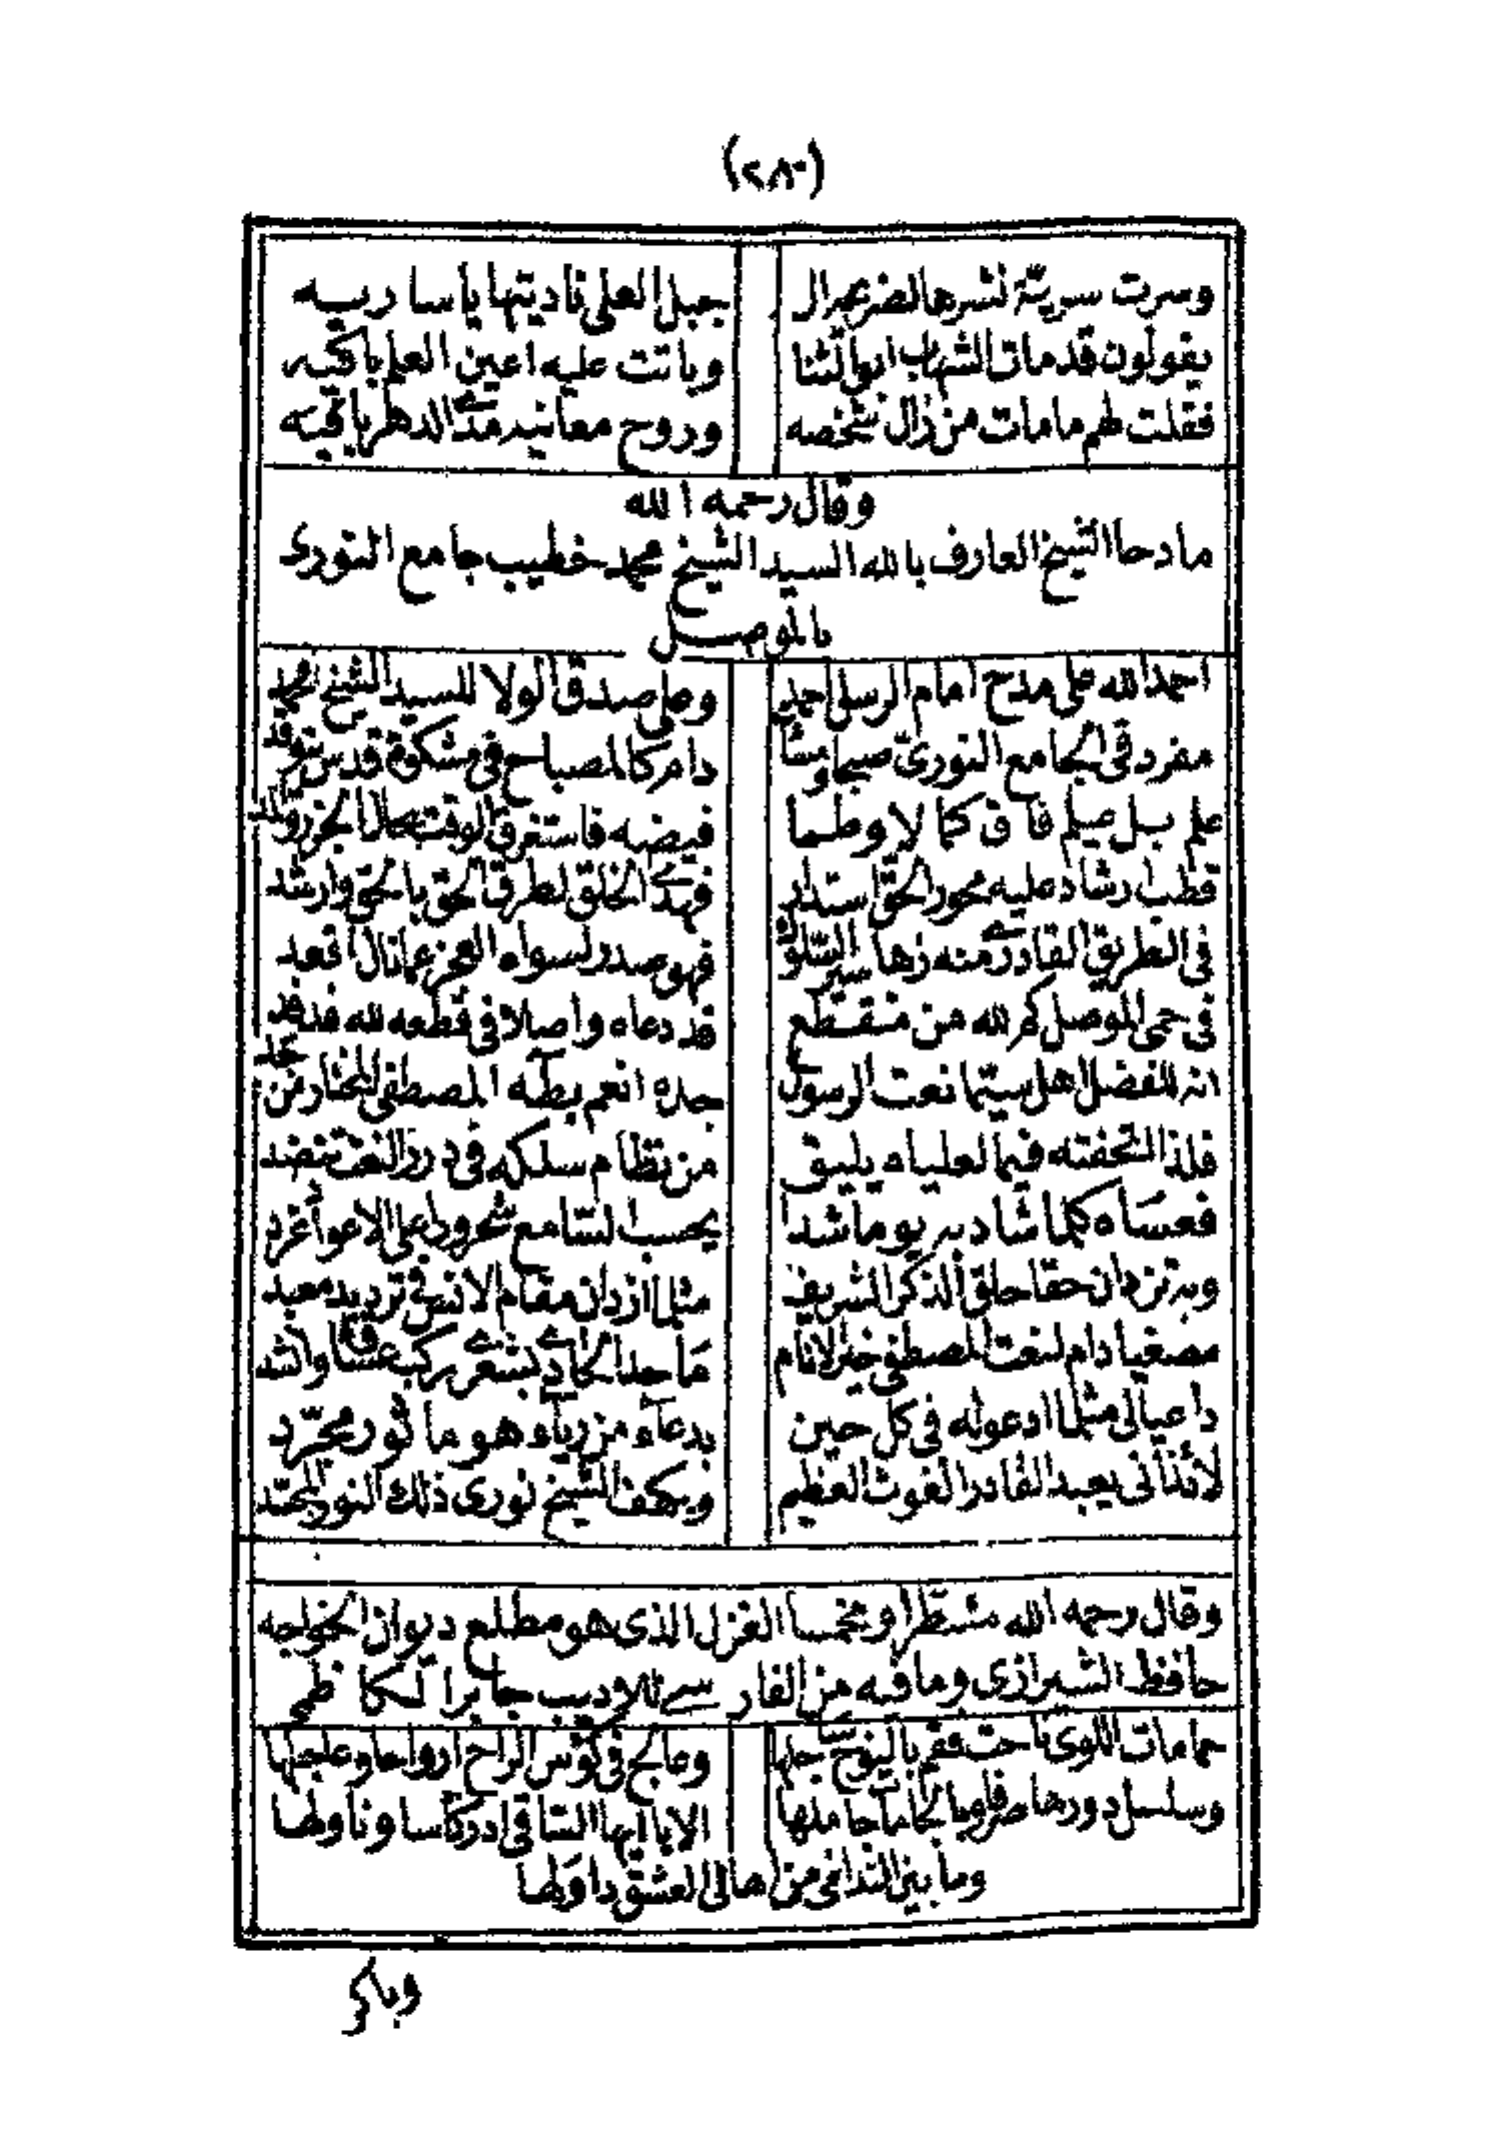 (٢٨٠)
وسرت سريّة نشرها لضريح ال جبل العلى ناديتها يا ساريه
يقولون قد مات الشهاب ابو الثنا وباتت عليه اعين العلم باكيه
فقلت لهم ما مات من زال شخصه وروح معانيه مدى الدهر باقيه
وقال رحمه الله
مادحا الشيخ العارف بالله السيد الشيخ محمد خطيب جامع النوري
بالموصل
احمد الله على مدح امام الرسل احمد وعلى صدق الولا للسيد الشيخ محمد
مفرد في الجامع النوري صبحا ومسا دام كالمصباح في مشكوة قدس توقد
علم بل عيلم فاق كمالا وطما فيضه فاستغرق الوقت بحال الجزر والمد
قطب ارشاد عليه محور الحق استدار فهدى الخلق لطرق الحق بالحق وارشد
في الطريق القادري منه زها سير السلوك فهو صدر لسواه العجز عما نال اقعد
في حمى الموصل كم لله من منقطع قد دعاه واصلا في قطعه لله فدفد
انه للفضل اهل سيّما نعت الرسول جده انعم بطه المصطفى المختار من جد
فلذا اتحفته فيما لعلياه يليق من نظام سلكه في درر النعت تنضد
فعساه كلما شاد به يوما شدا يحسب السامع شحرورا على الاعواد غرد
وبه تزدان حقا حلق الذكر الشريف مثلما ازدان مقام الانس في ترديد معبد
مصغيا دام لنعت المصطفى خير الانام ما حدا الحادي بشعري ركب عشاق وانشد
داعيا لي مثلما ادعو له في كل حين بدعآء من ريآء هو ماثور مجرّد
لائذا في بعبد القادر الغوث العظيم وبكهف الشيخ نوري ذلك النور المجسّد
وقال رحمه الله مشطرا ومخمسا الغزل الذي هو مطلع ديوان الخواجه
حافظ الشيرازي وما فيه من الفارسي للاديب جابر الكاظمي
حمامات اللوى ناحت فقم بالنوح ساجلها وعالج في كؤس الراح ارواحا وعاجلها
وسلسل دورها صرفا وبالجامات حاملها الا يا ايها الساقي ادر كأسا وناولها
وما بين الندامى من اهالي العشق داولها
وباكر